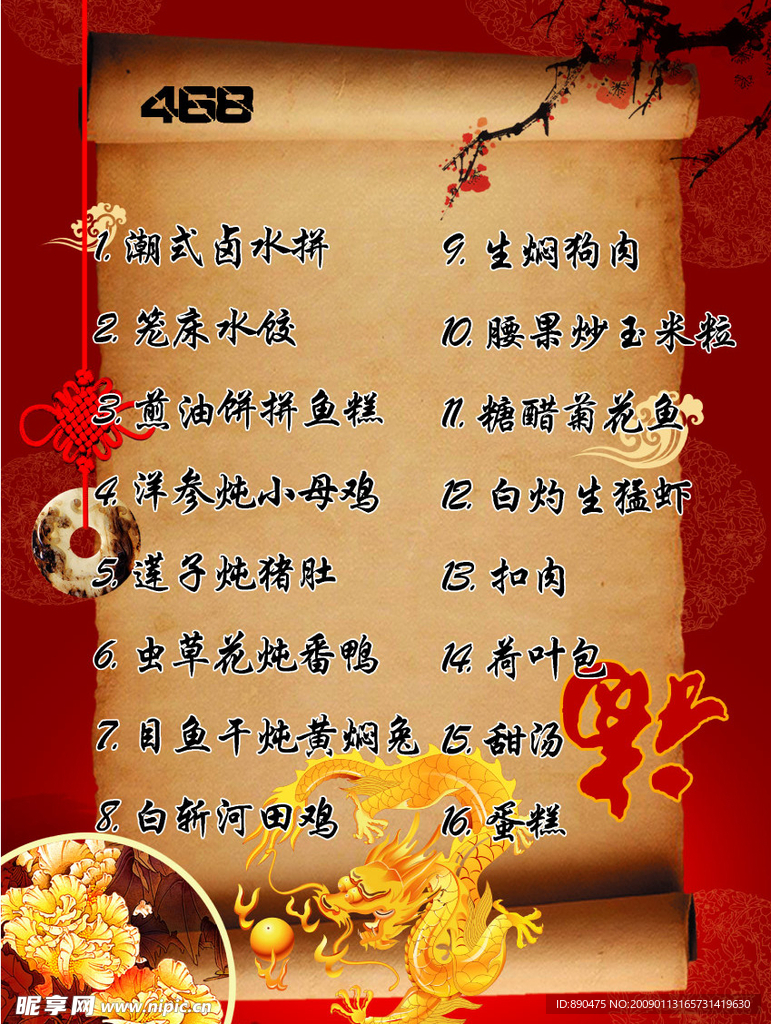 468
1. 潮式卤水拼
2. 笼床水饺
3. 煎油饼拼鱼糕
4. 洋参炖小母鸡
5. 莲子炖猪肚
6. 虫草花炖番鸭
7. 目鱼干炖黄焖兔
8. 白斩河田鸡
9. 生焖狗肉
10. 腰果炒玉米粒
11. 糖醋菊花鱼
12. 白灼生猛虾
13. 扣肉
14. 荷叶包
15. 甜汤
16. 蛋糕
福
昵享网 www.nipic.cn
ID:890475 NO:20090113165731419630